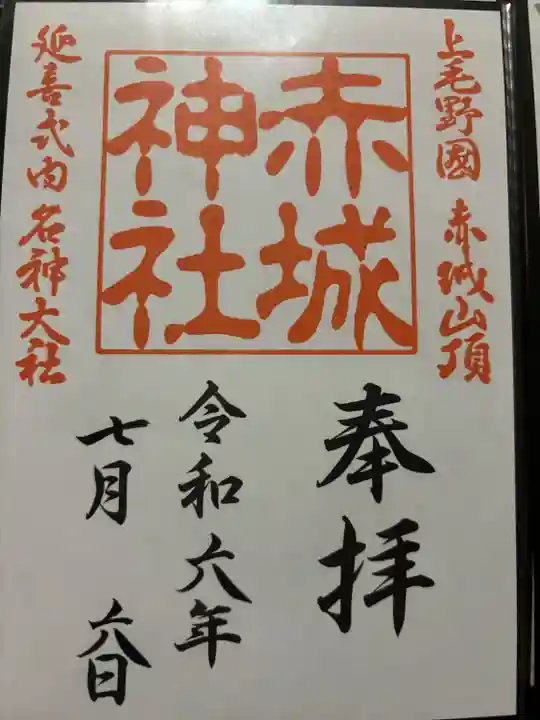 上毛野國 赤城山頂
赤城
神社
延喜式内名神大社
奉拝
令和六年
七月 六日